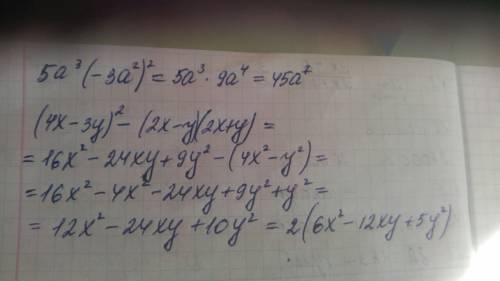 5a³(-3a²)² = 5a³ · 9a⁴ = 45a⁷
(4x-3y)² - (2x-y)(2x+y) =
= 16x² - 24xy + 9y² - (4x² - y²) =
= 16x² - 4x² - 24xy + 9y² + y² =
= 12x² - 24xy + 10y² = 2(6x² - 12xy + 5y²)